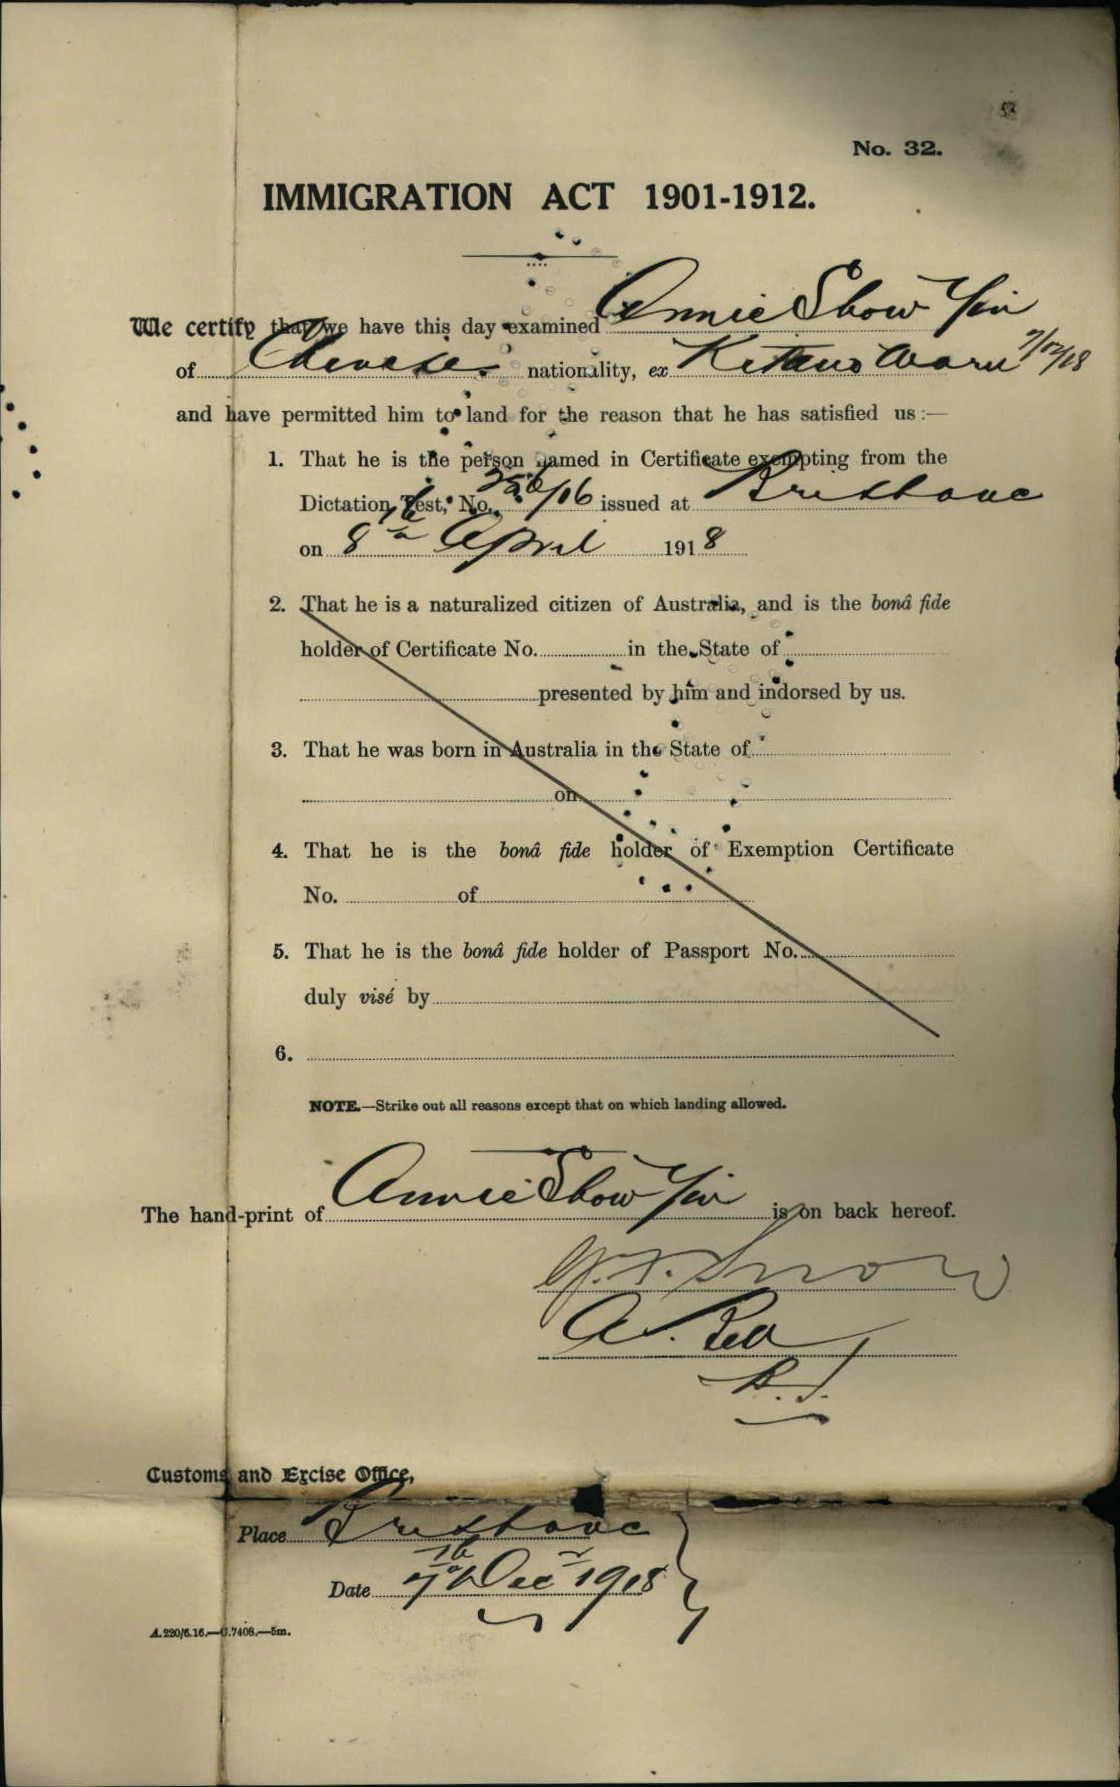 No. 32.
IMMIGRATION ACT 1901-1912.
We certify that we have this day examined Annie Show Yin
of Chinese nationality, ex Kitano Maru 7/12/18
and have permitted him to land for the reason that he has satisfied us :—
1. That he is the person named in Certificate exempting from the
Dictation Test, No. /06 issued at Brisbane
on 8th April 1918
2. That he is a naturalized citizen of Australia, and is the bonâ fide
holder of Certificate No. in the State of
presented by him and indorsed by us.
3. That he was born in Australia in the State of
on
4. That he is the bonâ fide holder of Exemption Certificate
No. of
5. That he is the bonâ fide holder of Passport No.
duly visé by
6.
NOTE.—Strike out all reasons except that on which landing allowed.
The hand-print of Annie Show Yin is on back hereof.
Snow
A. Rea
Customs and Excise Office,
Place Brisbane
Date 7th Dec 1918
A.220/6.16.—C.7408.—5m.